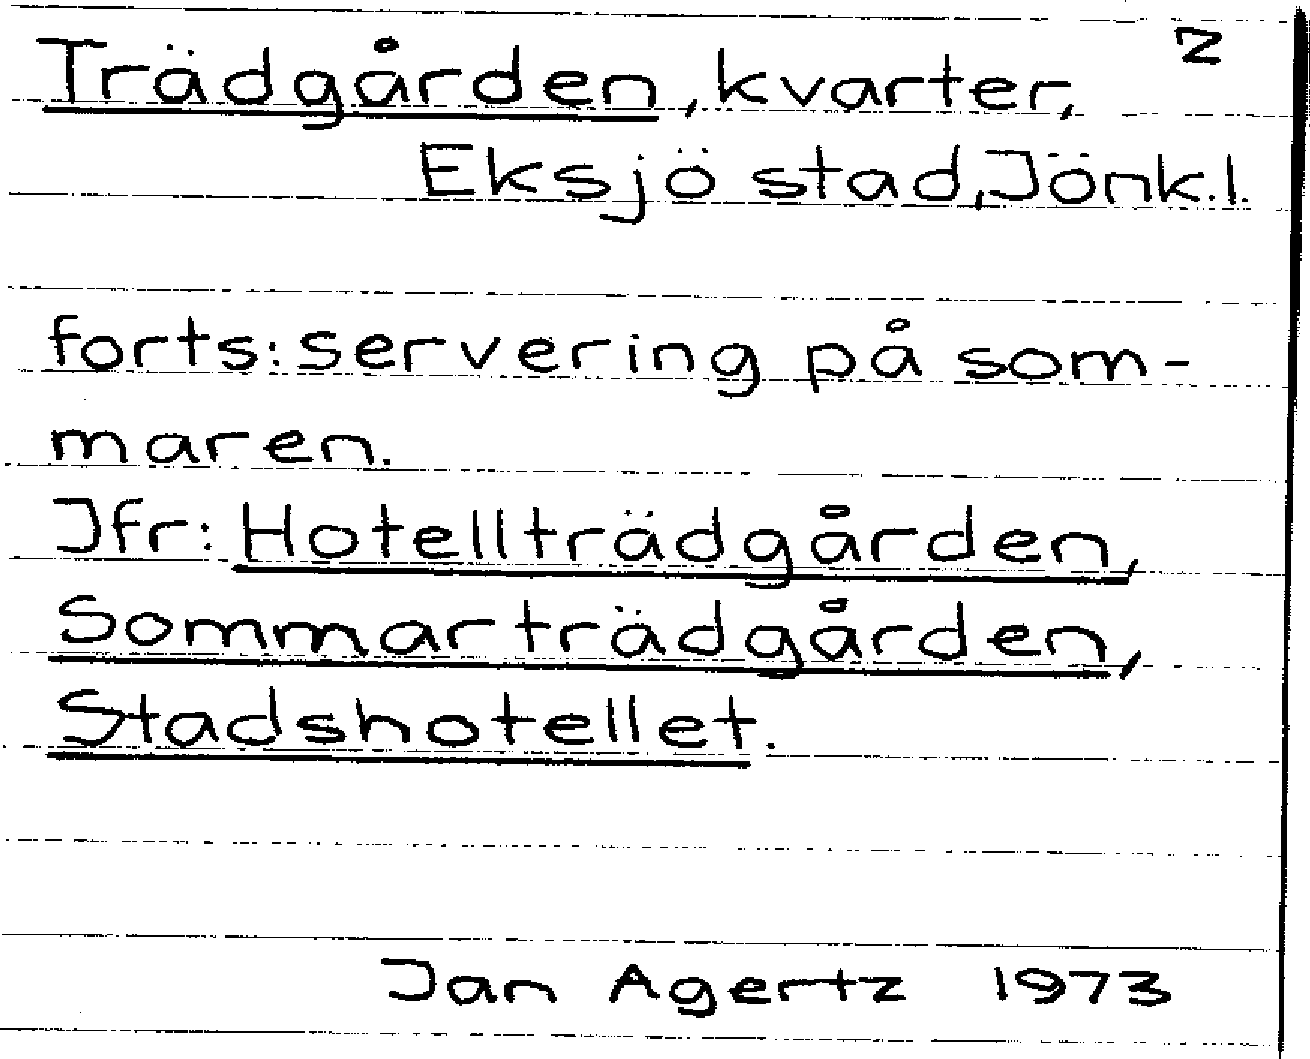 2
Trädgården, kvarter,
Eksjö stad, Jönk.l.
forts: servering på som-
maren.
Jfr: Hotellträdgården,
Sommarträdgården,
Stadshotellet.
Jan Agertz 1973